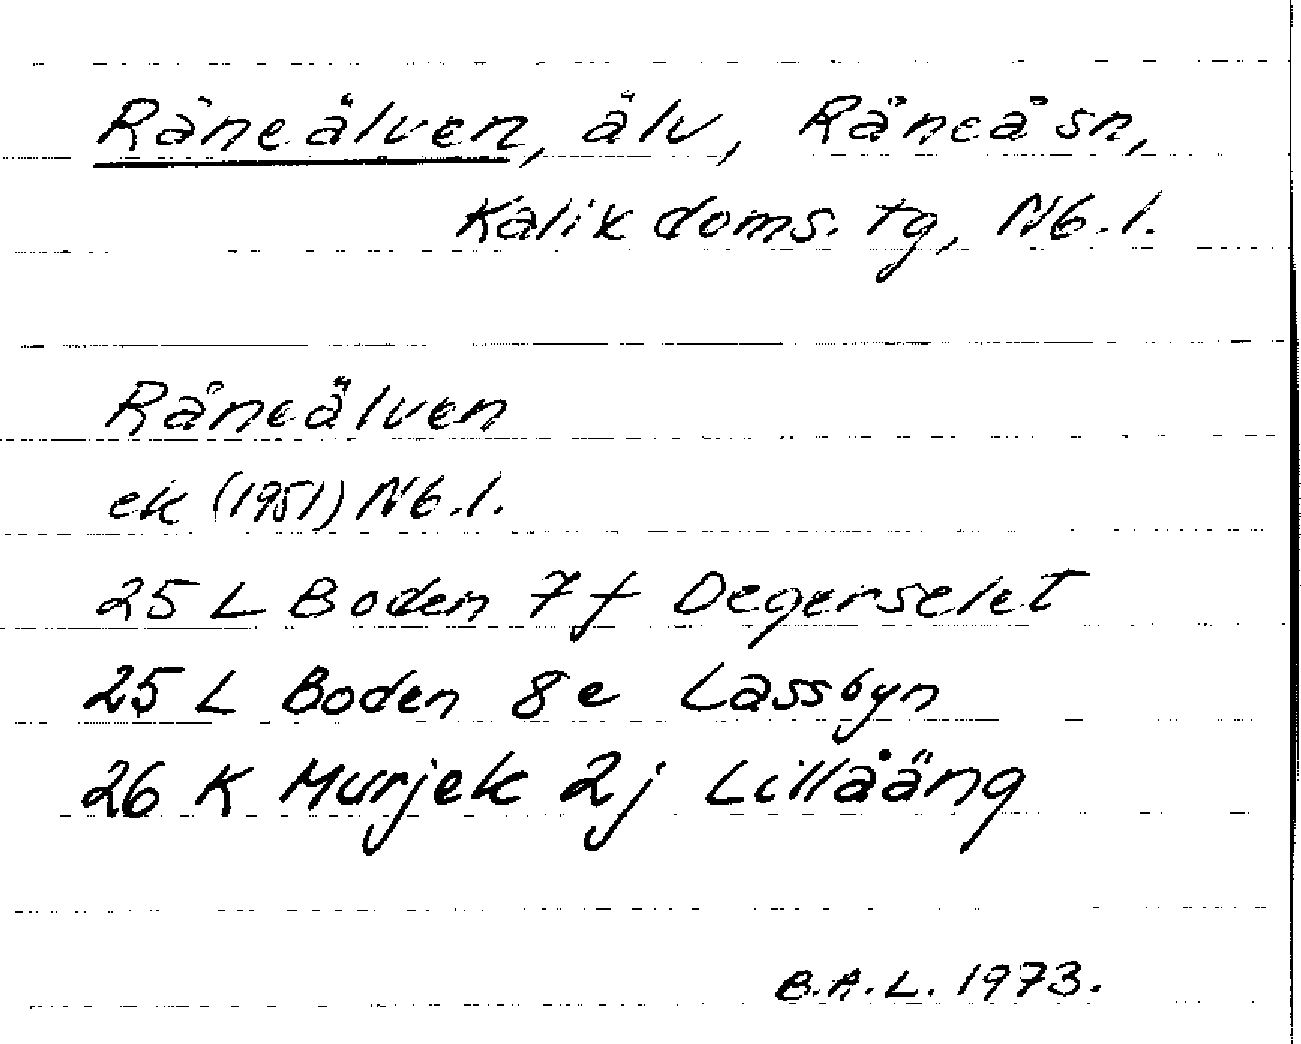 Råneälven, älv, Råneå sn,
Kalix doms. tg, Nb. l.
Råneälven
ek (1951) Nb. l.
25 L Boden 7 f Degerselet
25 L Boden 8 e Lassbyn
26 K Murjek 2 j Lillåäng
B.A.L. 1973.